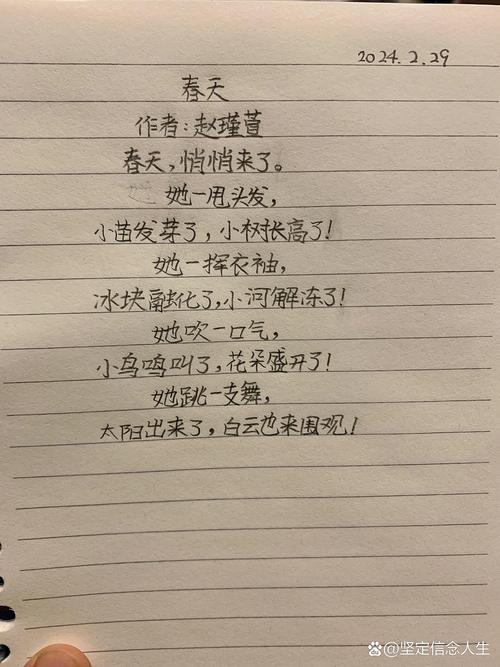 2024.2.29
春天
作者:赵瑾萱
春天,悄悄来了。
她一甩头发,
小苗发芽了,小树长高了!
她一挥衣袖,
冰块融化了,小河解冻了!
她吹一口气,
小鸟鸣叫了,花朵盛开了!
她跳一支舞,
太阳出来了,白云也来围观!
@坚定信念人生